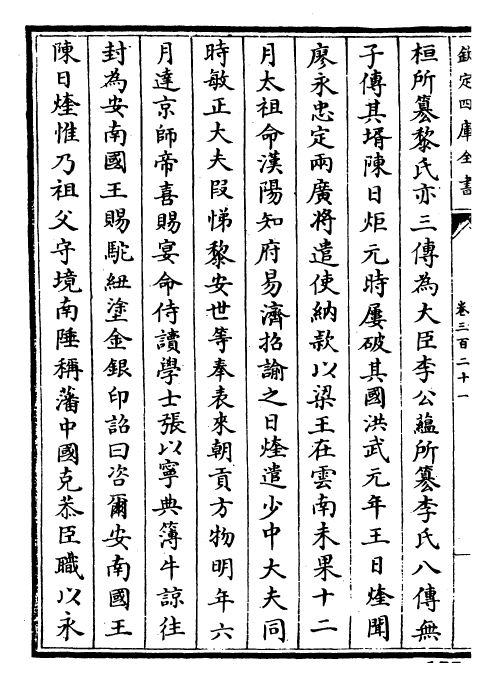 欽定四庫全書
卷三百二十一
桓所簒黎氏亦三傳為大臣李公藴所簒李氏八傳無
子傳其壻陳日炬元時屢破其國洪武元年王日煃聞
廖永忠定兩廣將遣使納款以梁王在雲南未果十二
月太祖命漢陽知府易濟招諭之日煃遣少中大夫同
時敏正大夫段悌黎安世等奉表來朝貢方物明年六
月達京師帝喜賜宴命侍讀學士張以寧典簿牛諒往
封為安南國王賜駝紐塗金銀印詔曰咨爾安南國王
陳日煃惟乃祖父守境南陲稱藩中國克恭臣職以永